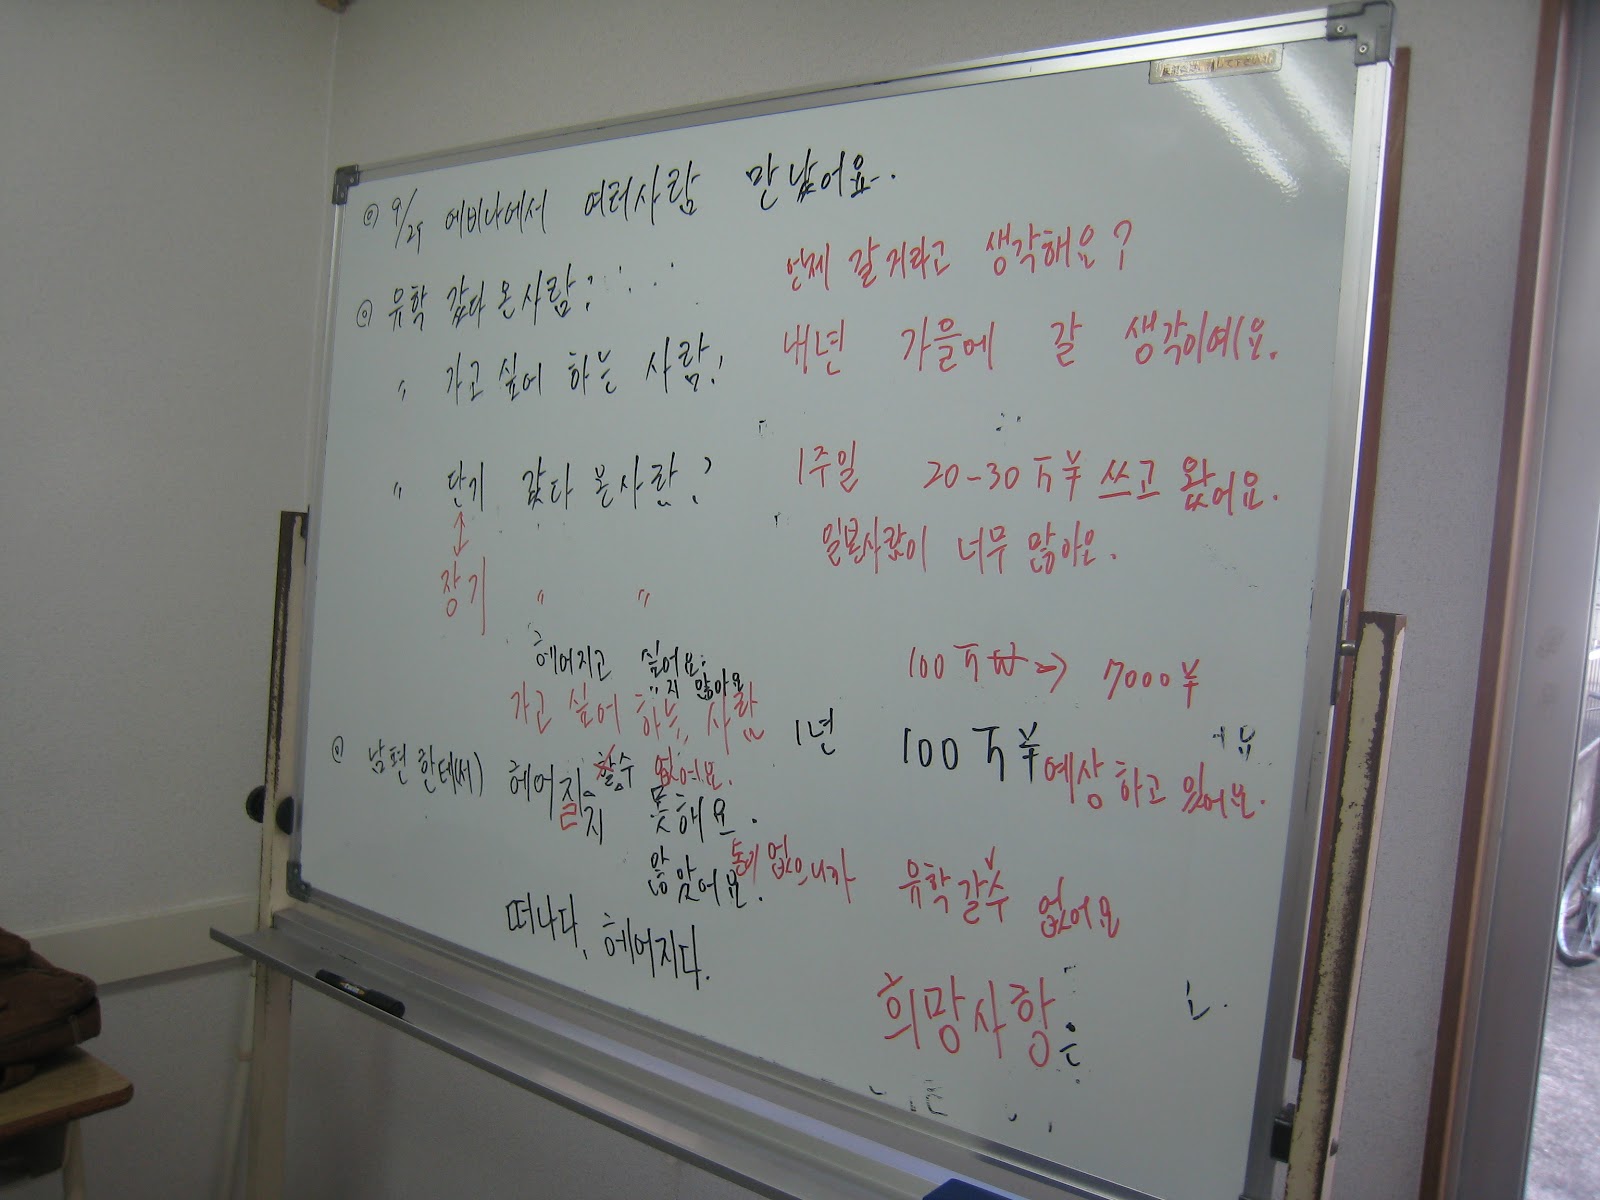 ◎ 9/29 에비나에서 여러사람 만났어요.
◎ 유학 갔다 온사람?
〃 가고 싶어 하는 사람?
〃 단기 갔다 온사람?
↕
장기 〃 〃
헤어지고 싶어요.
〃지 않아요
가고 싶어 하는 사람
◎ 남편한테(서) 헤어질 할수 없어요.
지 못해요.
않았어요.
떠나다, 헤어지다.
언제 갈거라고 생각해요?
내년 가을에 갈 생각이에요.
1주일 20-30万¥ 쓰고 왔어요.
일본사람이 너무 많아요.
100万₩ → 7000¥
1년 100万¥ 예상하고 있어요.
돈이 없으니까 유학갈수 없어요
희망사항은